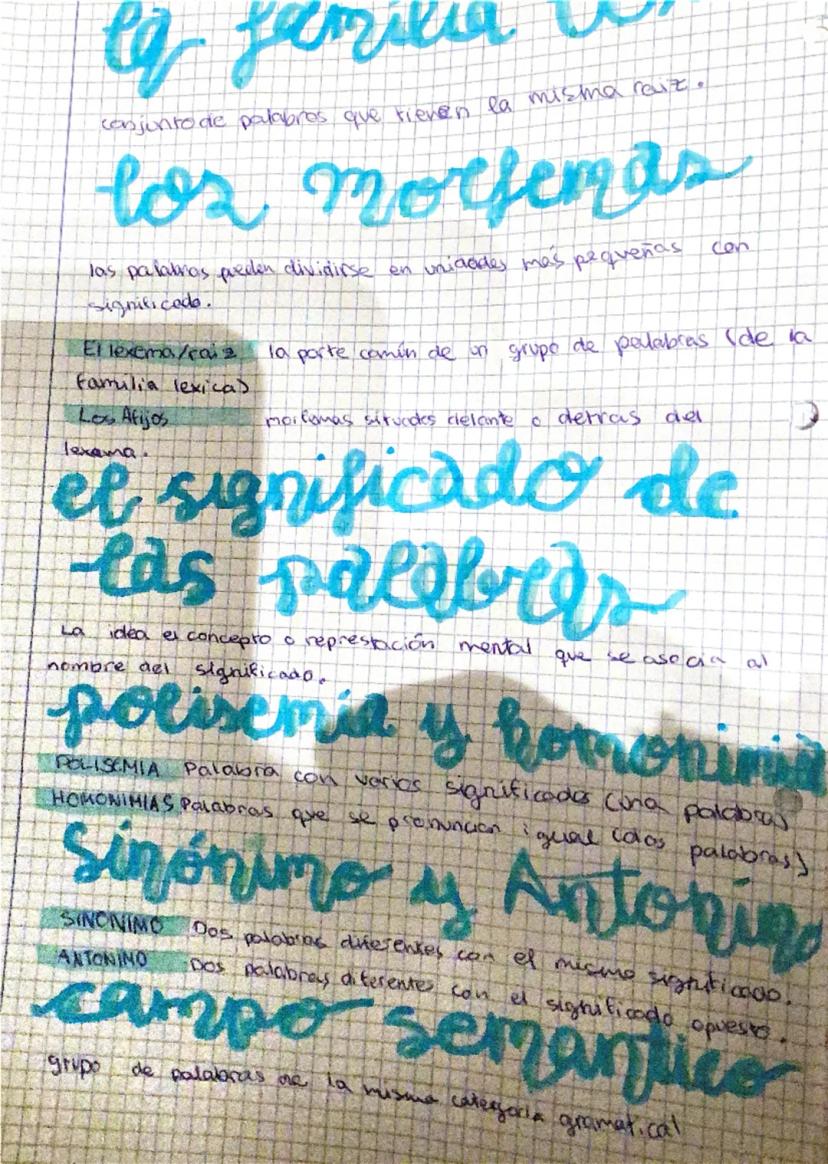 la familia
conjunto de palabras que tienen la misma raiz.
los morfemas
las palabras pueden dividirse en unidades más pequeñas con
significado.
El lexema/raiz la parte común de un grupo de palabras (de la
familia lexica)
Los Afijos morfemas situados delante o detras del
lexema.
el significado de
las palabras
La idea el concepto o represtación mental que se asocia al
nombre del significado.
polisemia y homonimia
POLISEMIA Palabra con varios significados (una palabra)
HOMONIMIAS Palabras que se pronuncian igual (dos palabras)
Sinónimo y Antónimo
SINONIMO Dos palabras diferentes con el mismo significado.
ANTONIMO Dos palabras diferentes con el significado opuesto.
campo semantico
grupo de palabras de la misma categoria gramatical